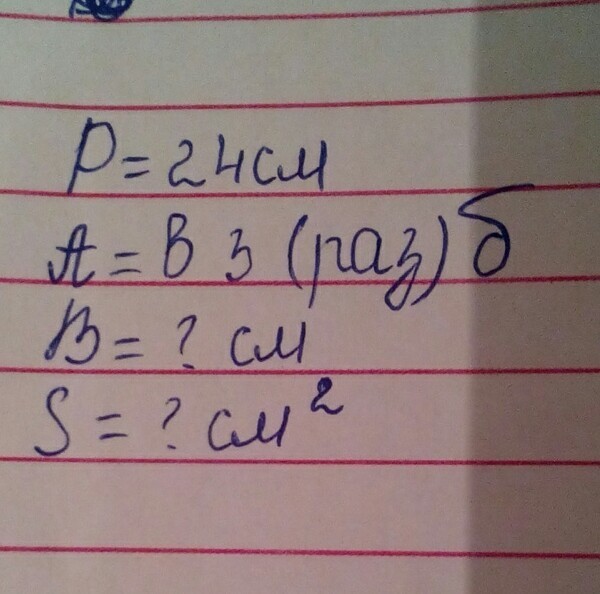 P = 24 см
A = В 3 (раз) б
B = ? см
S = ? см²